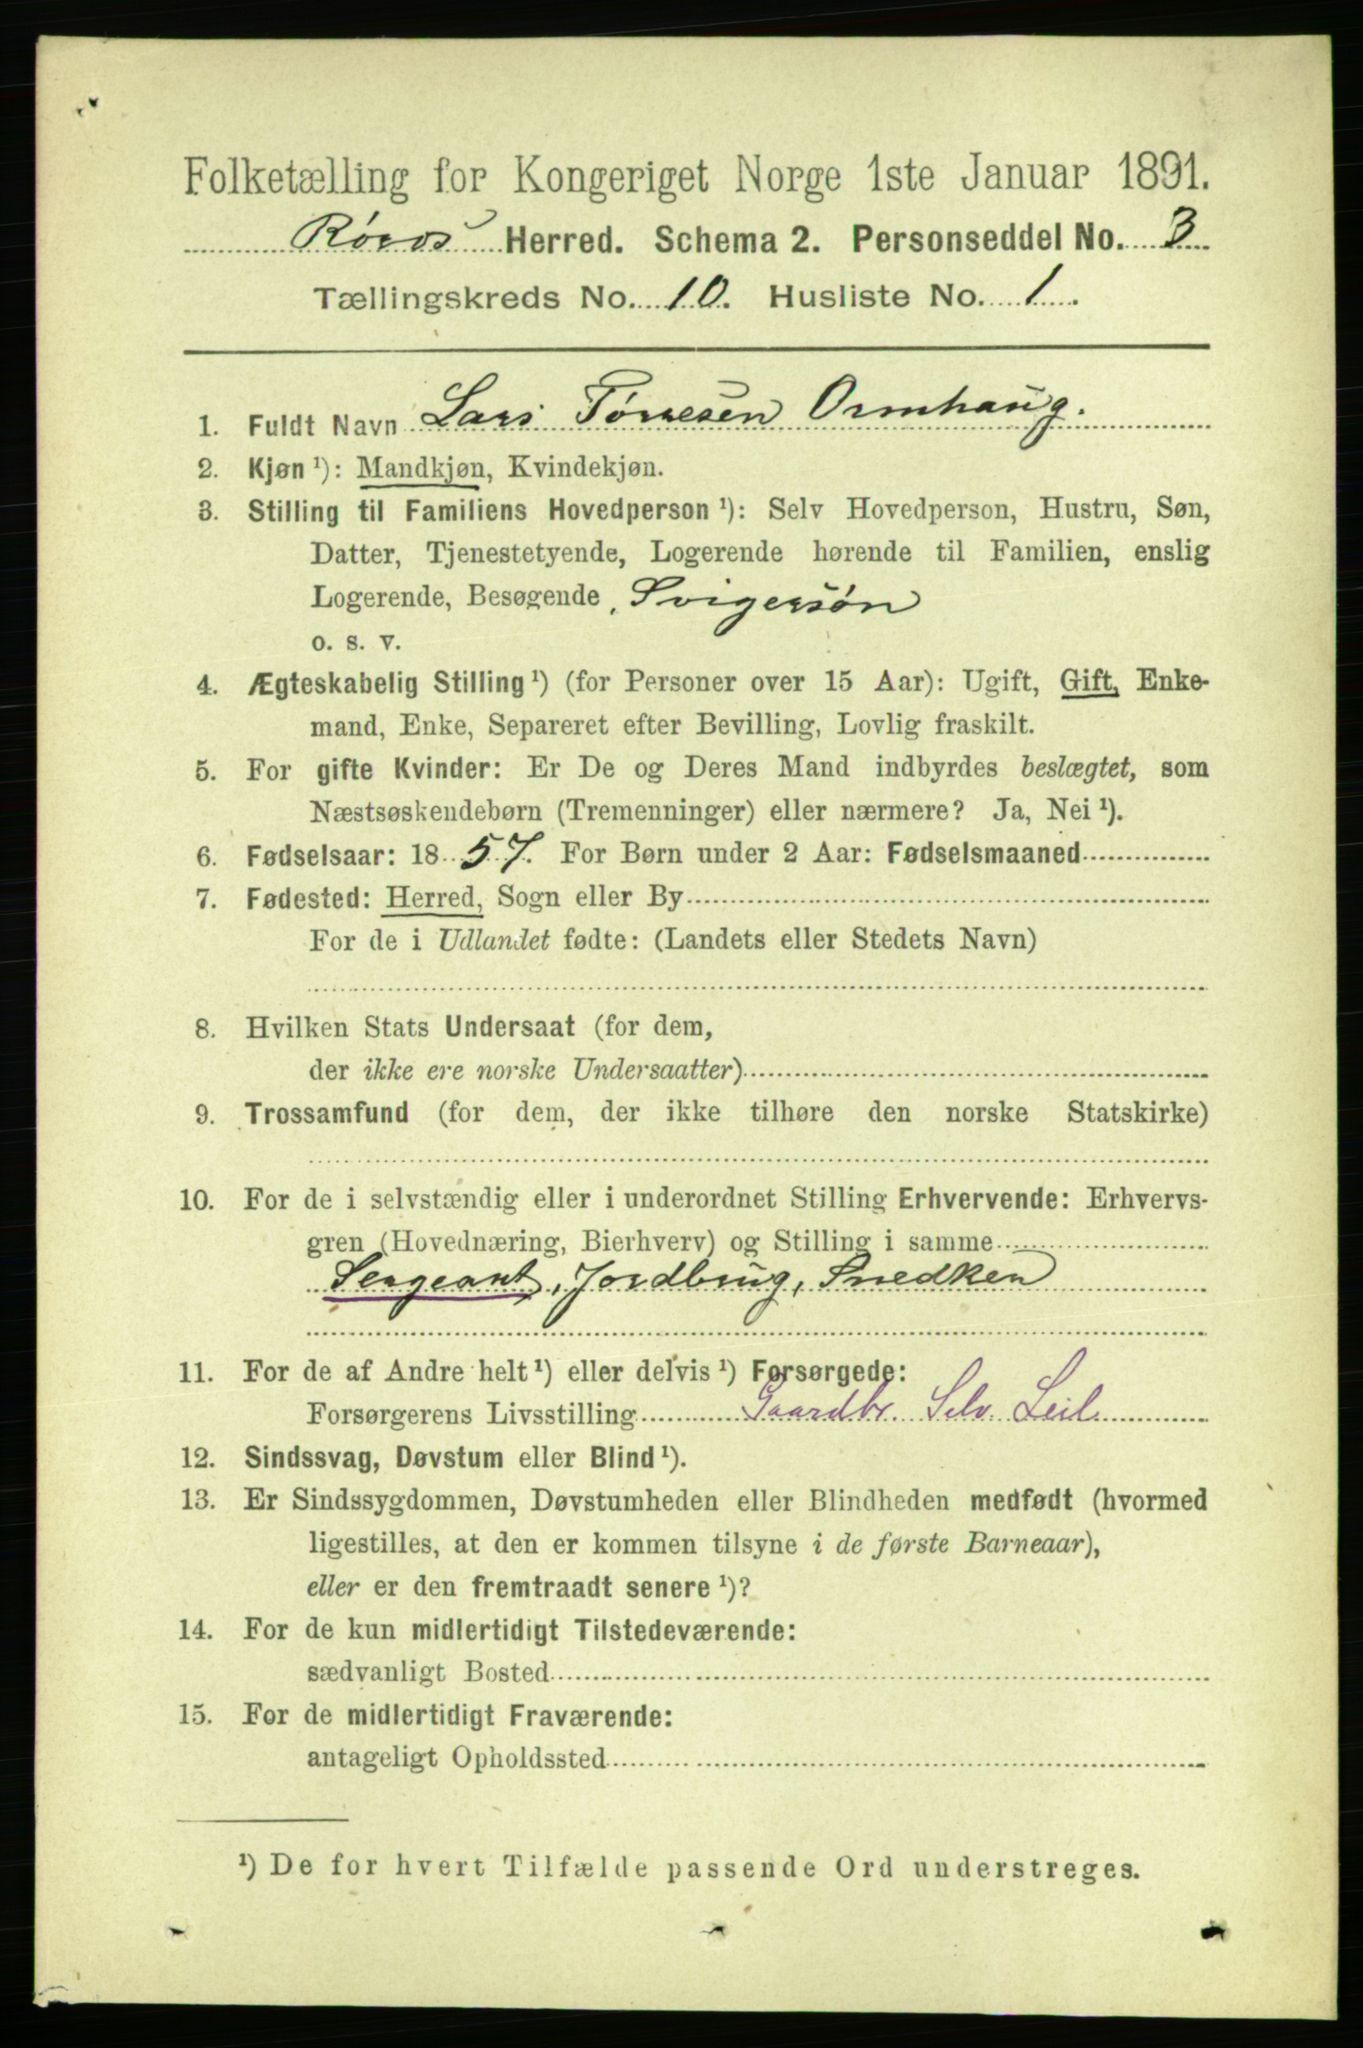 Folketælling for Kongeriget Norge 1ste Januar 1891.
Røros Herred. Schema 2. Personseddel No. 3
Tællingskreds No. 10. Husliste No. 1.
1. Fuldt Navn Lars Tørresen Ormhaug.
2. Kjøn ¹): Mandkjøn, Kvindekjøn.
3. Stilling til Familiens Hovedperson ¹): Selv Hovedperson, Hustru, Søn,
Datter, Tjenestetyende, Logerende hørende til Familien, enslig
Logerende, Besøgende, Svigersøn
o. s. v.
4. Ægteskabelig Stilling ¹) (for Personer over 15 Aar): Ugift, Gift, Enke-
mand, Enke, Separeret efter Bevilling, Lovlig fraskilt.
5. For gifte Kvinder: Er De og Deres Mand indbyrdes beslægtet, som
Næstsøskendebørn (Tremenninger) eller nærmere? Ja, Nei ¹).
6. Fødselsaar: 1857. For Børn under 2 Aar: Fødselsmaaned
7. Fødested: Herred, Sogn eller By
For de i Udlandet fødte: (Landets eller Stedets Navn)
8. Hvilken Stats Undersaat (for dem,
der ikke ere norske Undersaatter)
9. Trossamfund (for dem, der ikke tilhøre den norske Statskirke)
10. For de i selvstændig eller i underordnet Stilling Erhvervende: Erhvervs-
gren (Hovednæring, Bierhverv) og Stilling i samme
Sergeant, Jordbrug, Snedker
11. For de af Andre helt ¹) eller delvis ¹) Forsørgede:
Forsørgerens Livsstilling Gaardbr. Selv. Leil.
12. Sindssvag, Døvstum eller Blind ¹).
13. Er Sindssygdommen, Døvstumheden eller Blindheden medfødt (hvormed
ligestilles, at den er kommen tilsyne i de første Barneaar),
eller er den fremtraadt senere ¹)?
14. For de kun midlertidigt Tilstedeværende:
sædvanligt Bosted
15. For de midlertidigt Fraværende:
antageligt Opholdssted
¹) De for hvert Tilfælde passende Ord understreges.